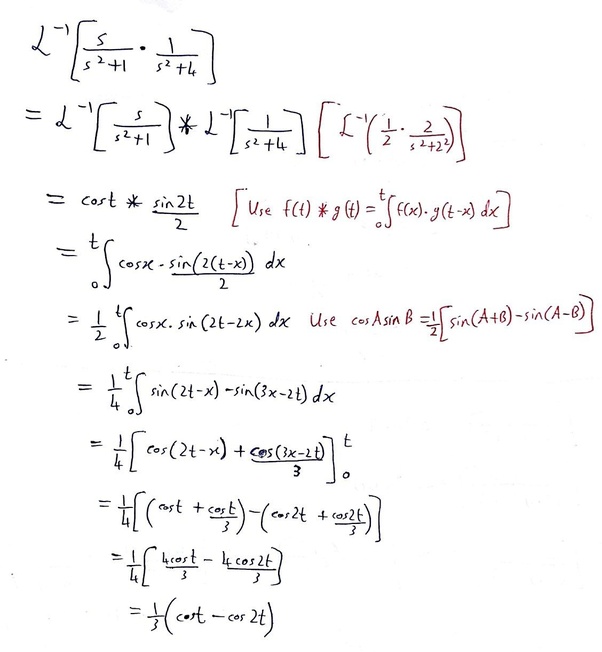 ℒ⁻¹[s/(s²+1) · 1/(s²+4)]
= ℒ⁻¹[s/(s²+1)] * ℒ⁻¹[1/(s²+4)] [ℒ⁻¹(1/2 · 2/(s²+2²))]
= cost * sin2t/2 [Use f(t) * g(t) = ₀∫ᵗ f(x).g(t-x) dx]
= ₀∫ᵗ cosx . sin(2(t-x))/2 dx
= 1/2 ₀∫ᵗ cosx. sin(2t-2x) dx Use cosAsinB = 1/2[sin(A+B)-sin(A-B)]
= 1/4 ₀∫ᵗ sin(2t-x) -sin(3x-2t) dx
= 1/4[cos(2t-x) + cos(3x-2t)/3]₀ᵗ
= 1/4[(cost + cost/3) - (cos2t + cos2t/3)]
= 1/4[4cost/3 - 4cos2t/3]
= 1/3(cost - cos2t)